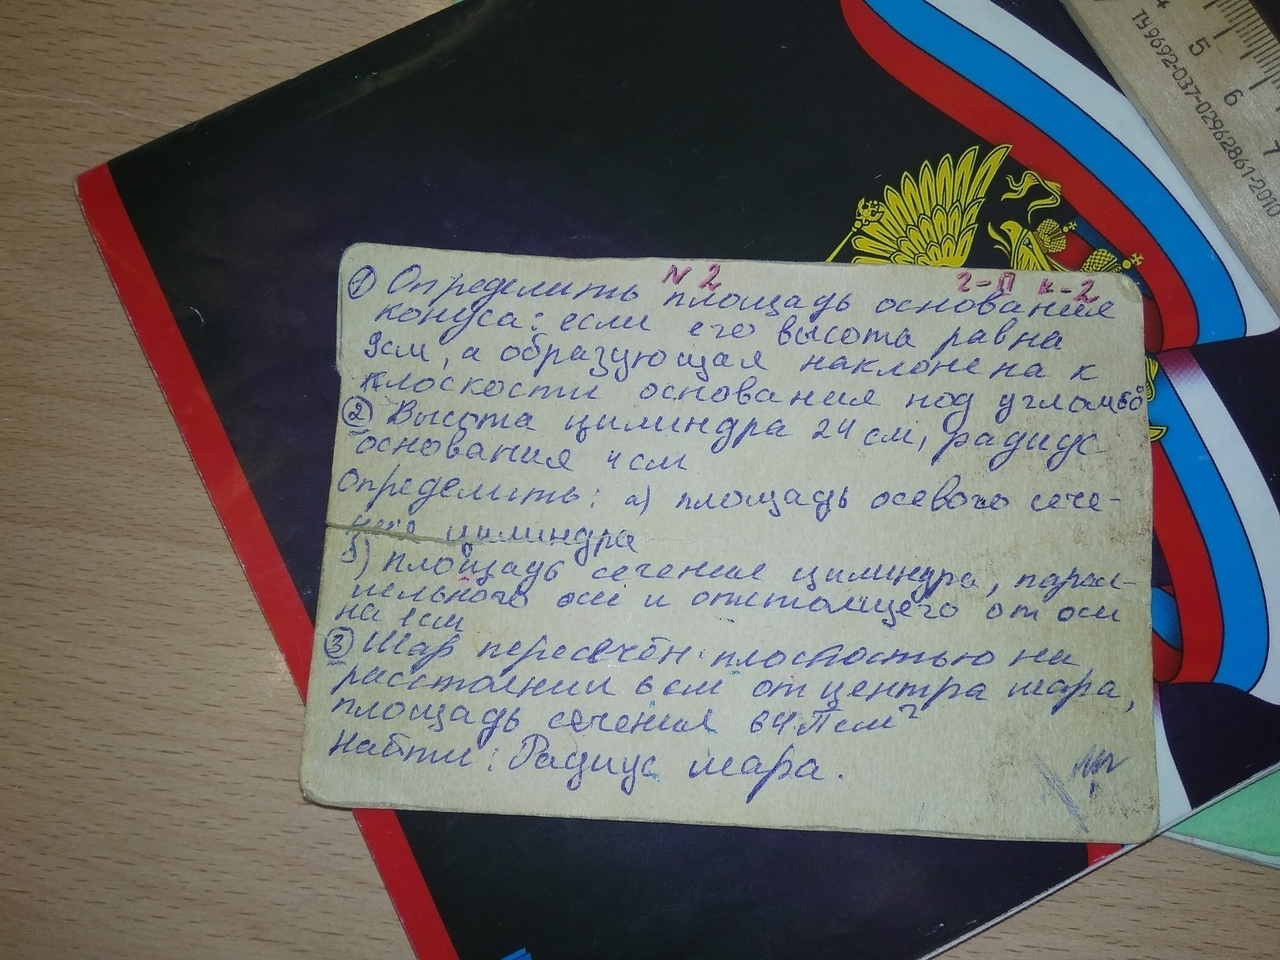 N 2
2-П К-2
① Определить площадь основания
конуса: если его высота равна
9см, а образующая наклонена к
плоскости основания под углом 60°
② Высота цилиндра 24 см, радиус
основания 4 см
Определить: а) площадь осевого сече-
ния цилиндра
б) площадь сечения цилиндра, парал-
лельного оси и отстоящего от оси
на 1 см
③ Шар пересечён плоскостью на
расстоянии 6 см от центра шара,
площадь сечения 64П см²
Найти: Радиус шара.
4
5
6
7
ТУ9692-037-02962861-2010